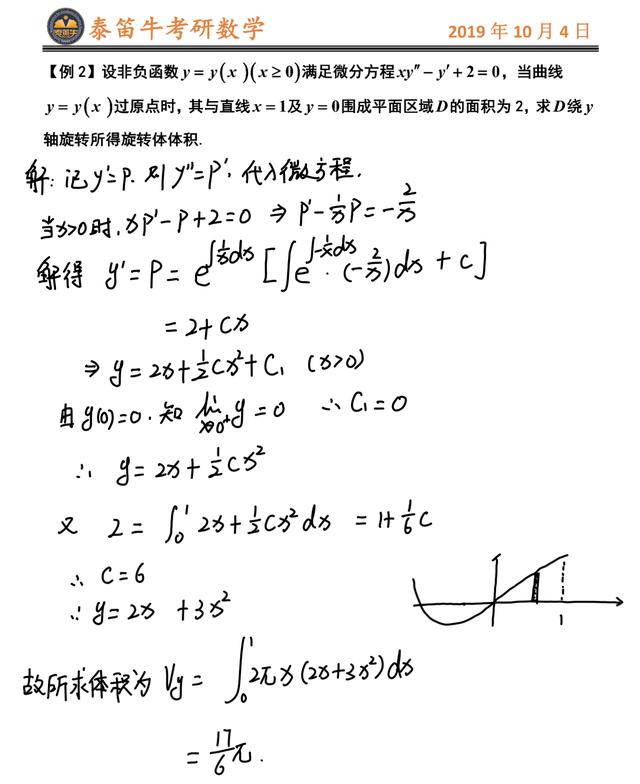 泰笛牛考研数学 2019 年 10 月 4 日
【例 2】设非负函数 y = y(x)(x ≥ 0)满足微分方程 xy″ − y′ + 2 = 0，当曲线
y = y(x)过原点时，其与直线 x = 1及 y = 0围成平面区域 D 的面积为 2，求 D 绕 y
轴旋转所得旋转体体积.
解: 记 y′=P. 则 y″=P′. 代入微方程.
当x>0时, xP′−P+2=0 ⇒ P′−1/x P=−2/x
解得 y′=P= e^{∫1/x dx} [∫e^{∫−1/x dx}·(−2/x)dx + C]
= 2+Cx
⇒ y=2x+1/2Cx²+C₁ (x>0)
由 y(0)=0. 知 lim_{x→0⁺} y=0 ∴ C₁=0
∴ y=2x+1/2Cx²
又 2= ∫₀¹ 2x+1/2Cx² dx = 1+1/6C
∴ C=6
∴ y=2x +3x²
1
故所求体积为 Vy = ∫₀¹ 2πx(2x+3x²)dx
= 17/6 π.